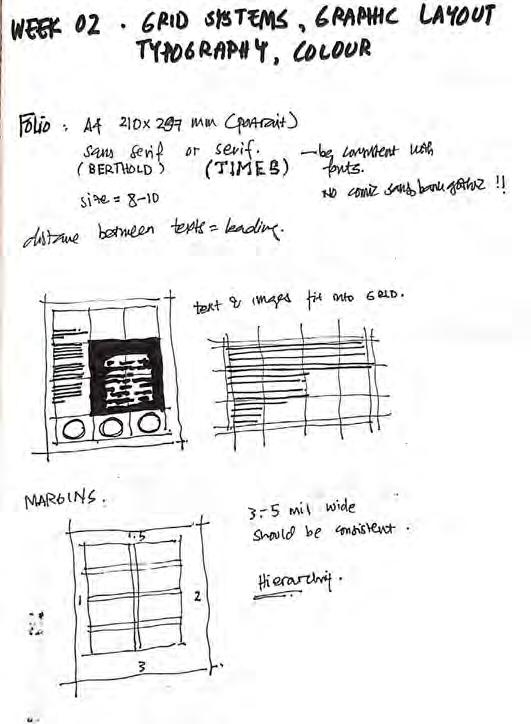 WEEK 02 . GRID SYSTEMS, GRAPHIC LAYOUT
TYPOGRAPHY, COLOUR
Folio : A4 210x297 mm (portrait)
sans serif or serif. – be consistent with
(BERTHOLD) (TIMES) fonts.
size = 8-10 NO comic sans bank gothic !!
distance between texts = leading.
text & images fit into GRID.
MARGINS.
3-5 mil wide
should be consistent.
Hierarchy.
1.5
1
2
3